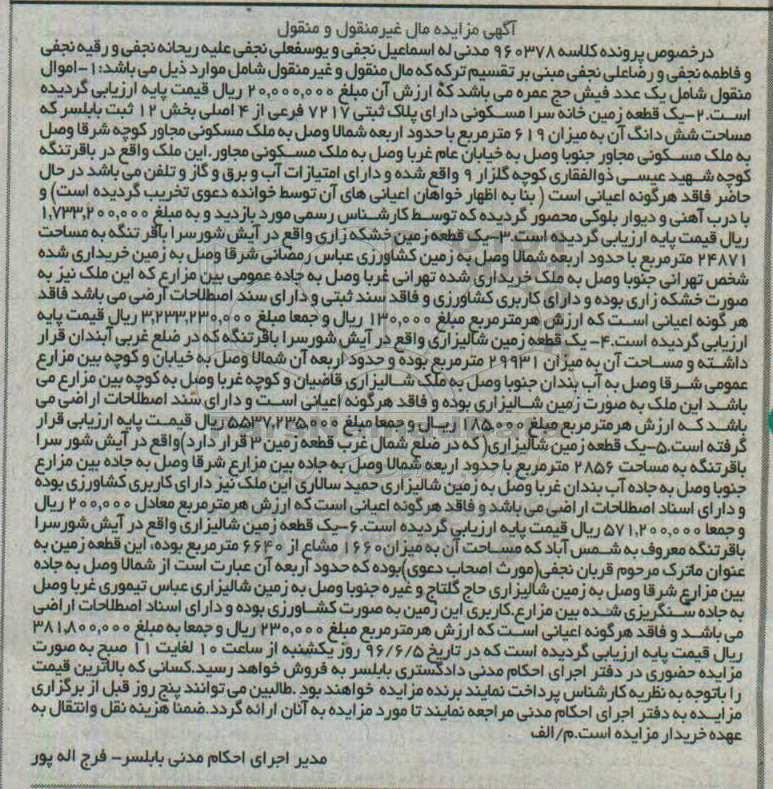 آگهی مزایده مال غیرمنقول و منقول
درخصوص پرونده کلاسه ۹۶۰۳۷۸ مدنی له اسماعیل نجفی و یوسفعلی نجفی علیه ریحانه نجفی و رقیه نجفی
و فاطمه نجفی و رضاعلی نجفی مبنی بر تقسیم ترکه که مال منقول و غیرمنقول شامل موارد ذیل می باشد:۱-اموال
منقول شامل یک عدد فیش حج عمره می باشد که ارزش آن مبلغ ۲۰,۰۰۰,۰۰۰ ریال قیمت پایه ارزیابی گردیده
است.۲-یک قطعه زمین خانه سرا مسکونی دارای پلاک ثبتی ۷۲۱۷ فرعی از ۴ اصلی بخش ۱۲ ثبت بابلسر که
مساحت شش دانگ آن به میزان ۶۱۹ مترمربع با حدود اربعه شمالا وصل به ملک مسکونی مجاور کوچه شرقا وصل
به ملک مسکونی مجاور جنوبا وصل به خیابان عام غربا وصل به ملک مسکونی مجاور.این ملک واقع در باقرتنگه
کوچه شهید عیسی ذوالفقاری کوچه گلزار ۹ واقع شده و دارای امتیازات آب و برق و گاز و تلفن می باشد در حال
حاضر فاقد هرگونه اعیانی است ( بنا به اظهار خواهان اعیانی های آن توسط خوانده دعوی تخریب گردیده است) و
با درب آهنی و دیوار بلوکی محصور گردیده که توسط کارشناس رسمی مورد بازدید و به مبلغ ۱,۷۳۳,۲۰۰,۰۰۰
ریال قیمت پایه ارزیابی گردیده است.۳-یک قطعه زمین خشکه زاری واقع در آیش شورسرا باقر تنگه به مساحت
۲۴۸۷۱ مترمربع با حدود اربعه شمالا وصل به زمین کشاورزی عباس رمضانی شرقا وصل به زمین خریداری شده
شخص تهرانی جنوبا وصل به ملک خریداری شده تهرانی غربا وصل به جاده عمومی بین مزارع که این ملک نیز به
صورت خشکه زاری بوده و دارای کاربری کشاورزی و فاقد سند ثبتی و دارای سند اصطلاحات ارضی می باشد فاقد
هر گونه اعیانی است که ارزش هرمترمربع مبلغ ۱۳۰,۰۰۰ ریال و جمعا مبلغ ۳,۲۳۳,۲۳۰,۰۰۰ ریال قیمت پایه
ارزیابی گردیده است.۴- یک قطعه زمین شالیزاری واقع در آیش شورسرا باقرتنگه که در ضلع غربی آبندان قرار
داشته و مساحت آن به میزان ۲۹۹۳۱ مترمربع بوده و حدود اربعه آن شمالا وصل به خیابان و کوچه بین مزارع
عمومی شرقا وصل به آب بندان جنوبا وصل به ملک شالیزاری قاضیان و کوچه غربا وصل به کوچه بین مزارع می
باشد این ملک به صورت زمین شالیزاری بوده و فاقد هرگونه اعیانی است و دارای سند اصطلاحات اراضی می
باشد که ارزش هرمترمربع مبلغ ۱۸۵,۰۰۰ ریال و جمعا مبلغ ۵۵۳۷,۲۳۵,۰۰۰ ریال قیمت پایه ارزیابی قرار
گرفته است.۵-یک قطعه زمین شالیزاری( که در ضلع شمال غرب قطعه زمین ۳ قرار دارد)واقع در آیش شور سرا
باقرتنگه به مساحت ۲۸۵۶ مترمربع با حدود اربعه شمالا وصل به جاده بین مزارع شرقا وصل به جاده بین مزارع
جنوبا وصل به جاده آب بندان غربا وصل به زمین شالیزاری حمید سالاری این ملک نیز دارای کاربری کشاورزی بوده
و دارای اسناد اصطلاحات اراضی می باشد و فاقد هرگونه اعیانی است که ارزش هرمترمربع معادل ۲۰۰,۰۰۰ ریال
و جمعا ۵۷۱,۲۰۰,۰۰۰ ریال قیمت پایه ارزیابی گردیده است.۶-یک قطعه زمین شالیزاری واقع در آیش شورسرا
باقرتنگه معروف به شمس آباد که مساحت آن به میزان ۱۶۶۰ مشاع از ۶۶۴۰ مترمربع بوده، این قطعه زمین به
عنوان ماترک مرحوم قربان نجفی(مورث اصحاب دعوی)بوده که حدود اربعه آن عبارت است از شمالا وصل به جاده
بین مزارع شرقا وصل به زمین شالیزاری حاج گلتاج و غیره جنوبا وصل به زمین شالیزاری عباس تیموری غربا وصل
به جاده سنگریزی شده بین مزارع.کاربری این زمین به صورت کشاورزی بوده و دارای اسناد اصطلاحات اراضی
می باشد و فاقد هرگونه اعیانی است که ارزش هرمترمربع مبلغ ۲۳۰,۰۰۰ ریال و جمعا به مبلغ ۳۸۱,۸۰۰,۰۰۰
ریال قیمت پایه ارزیابی گردیده است که در تاریخ ۹۶/۶/۵ روز یکشنبه از ساعت ۱۰ لغایت ۱۱ صبح به صورت
مزایده حضوری در دفتر اجرای احکام مدنی دادگستری بابلسر به فروش خواهد رسید.کسانی که بالاترین قیمت
را باتوجه به نظریه کارشناس پرداخت نمایند برنده مزایده خواهند بود .طالبین می توانند پنج روز قبل از برگزاری
مزایده به دفتر اجرای احکام مدنی مراجعه نمایند تا مورد مزایده به آنان ارائه گردد.ضمنا هزینه نقل وانتقال به
عهده خریدار مزایده است.م/الف
مدیر اجرای احکام مدنی بابلسر- فرج اله پور